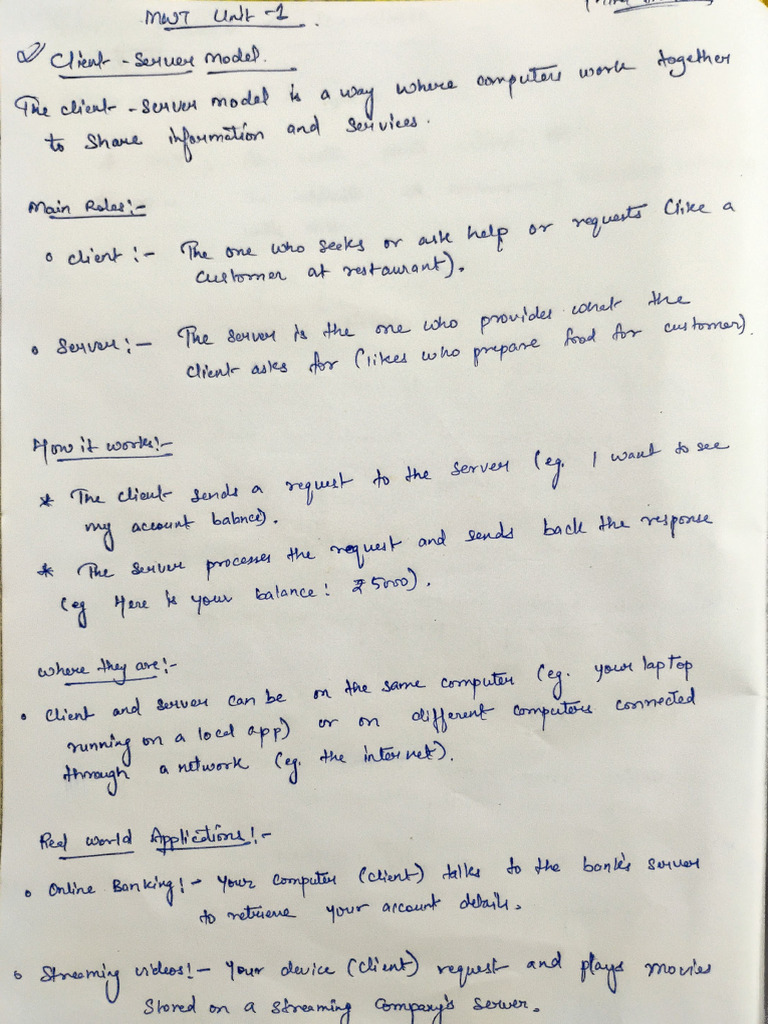 MWT Unit -1
Client - Server Model.
The client - server model is a way where computers work together
to share information and services.
Main Roles:-
client :- The one who seeks or ask help or requests (like a
customer at restaurant).
Server :- The server is the one who provides what the
client asks for (likes who prepare food for customer).
How it works:-
* The client sends a request to the server (eg. I want to see
my account balance).
* The server processes the request and sends back the response
(eg Here is your balance: ₹5000).
where they are:-
Client and server can be on the same computer (eg. your laptop
running on a local app) or on different computers connected
through a network (eg. the internet).
Real world Applications:-
Online Banking:- Your computer (client) talks to the bank's server
to retrieve your account details.
Streaming videos:- Your device (client) request and plays movies
Stored on a streaming company's server.